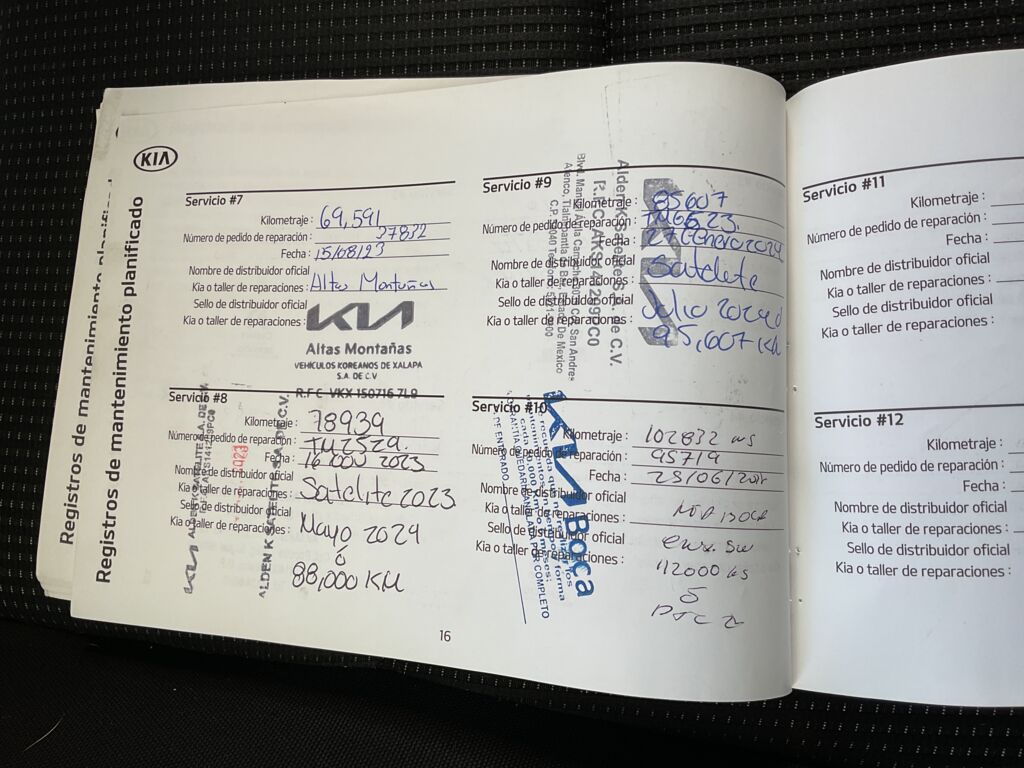 Registros de mantenimiento planifi
Registros de mantenimiento planificado
KIA
Servicio #7
Kilometraje: 69,591
Número de pedido de reparación: 27832
Fecha: 15/08/23
Nombre de distribuidor oficial
Kia o taller de reparaciones: Altas Montañas
Sello de distribuidor oficial
Kia o taller de reparaciones:
KIA
Altas Montañas
VEHÍCULOS KOREANOS DE XALAPA
S.A. DE C.V
R.F.C VKX 150716 7L9
Servicio #8
Kilometraje: 78939
Número de pedido de reparación: TN2529.
Fecha: 16 2023
Nombre de distribuidor oficial
Kia o taller de reparaciones: Satelite 2023
Sello de distribuidor oficial
Kia o taller de reparaciones: Mayo 2024
ó
88,000 KM
KIA
ALDEN K SATELITE S.A. DE C.V.
Servicio #9
Kilometraje: 85607
Número de pedido de reparación: TN6523.
Fecha: 27 Enero 2024
Nombre de distribuidor oficial
Kia o taller de reparaciones: Satelite
Sello de distribuidor oficial
Kia o taller de reparaciones: Julio 2024 ó
95,607 KM
Alden K Satelite S.A. de C.V.
Servicio #10
Kilometraje: 102832
Número de pedido de reparación: 95719
Fecha: 25/06/
Nombre de distribuidor oficial
Kia o taller de reparaciones:
Sello de distribuidor oficial
Kia o taller de reparaciones:
112000
ó
KIA Boca
16
Servicio #11
Kilometraje:
Número de pedido de reparación:
Fecha:
Nombre de distribuidor oficial
Kia o taller de reparaciones:
Sello de distribuidor oficial
Kia o taller de reparaciones:
Servicio #12
Kilometraje:
Número de pedido de reparación:
Fecha:
Nombre de distribuidor oficial
Kia o taller de reparaciones:
Sello de distribuidor oficial
Kia o taller de reparaciones: